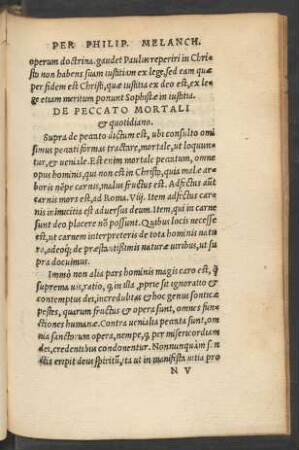 PER PHILIP. MELANCH.
operum doctrina. gaudet Paulus reperiri in Chri-
sto non habens suam iustitiam ex lege, sed eam quæ
per fidem est Christi, quæ iustitia ex deo est, ex le-
ge etiam meritum ponunt Sophistæ in iustitia.
DE PECCATO MORTALI
& quotidiano.
Supra de peccato dictum est, ubi consulto omi
simus peccati formas tractare, mortale, ut loquun-
tur, & ueniale. Est enim mortale peccatum, omne
opus hominis, qui non est in Christo, quia malæ ar-
boris nẽpe carnis, malus fructus est. Adfectus aũt
carnis mors est, ad Roma. Viij. Item adfectus car-
nis inimicitia est aduersus deum. Item, qui in carne
sunt deo placere nõ possunt. Quibus locis necesse
est, ut carnem interpreteris de tota hominis natu
ra, adeoq; de præstantissimis naturæ uiribus, ut su
pra docuimus.
Immò non alia pars hominis magis caro est, q̃
suprema uis, ratio, q̃ in illa, pprie sit ignoratio &
contemptus dei, incredulitas & hoc genus sonticæ
pestes, quarum fructus & opera sunt, omnes fun-
ctiones humanæ. Contra uenialia peccata sunt, om
nia sanctorum opera, nempe, q̃ per misericordiam
dei, credentibus condonentur. Nonnunquàm
eripit deus spiritũ, ita ut in manifesta uitia pro
N V